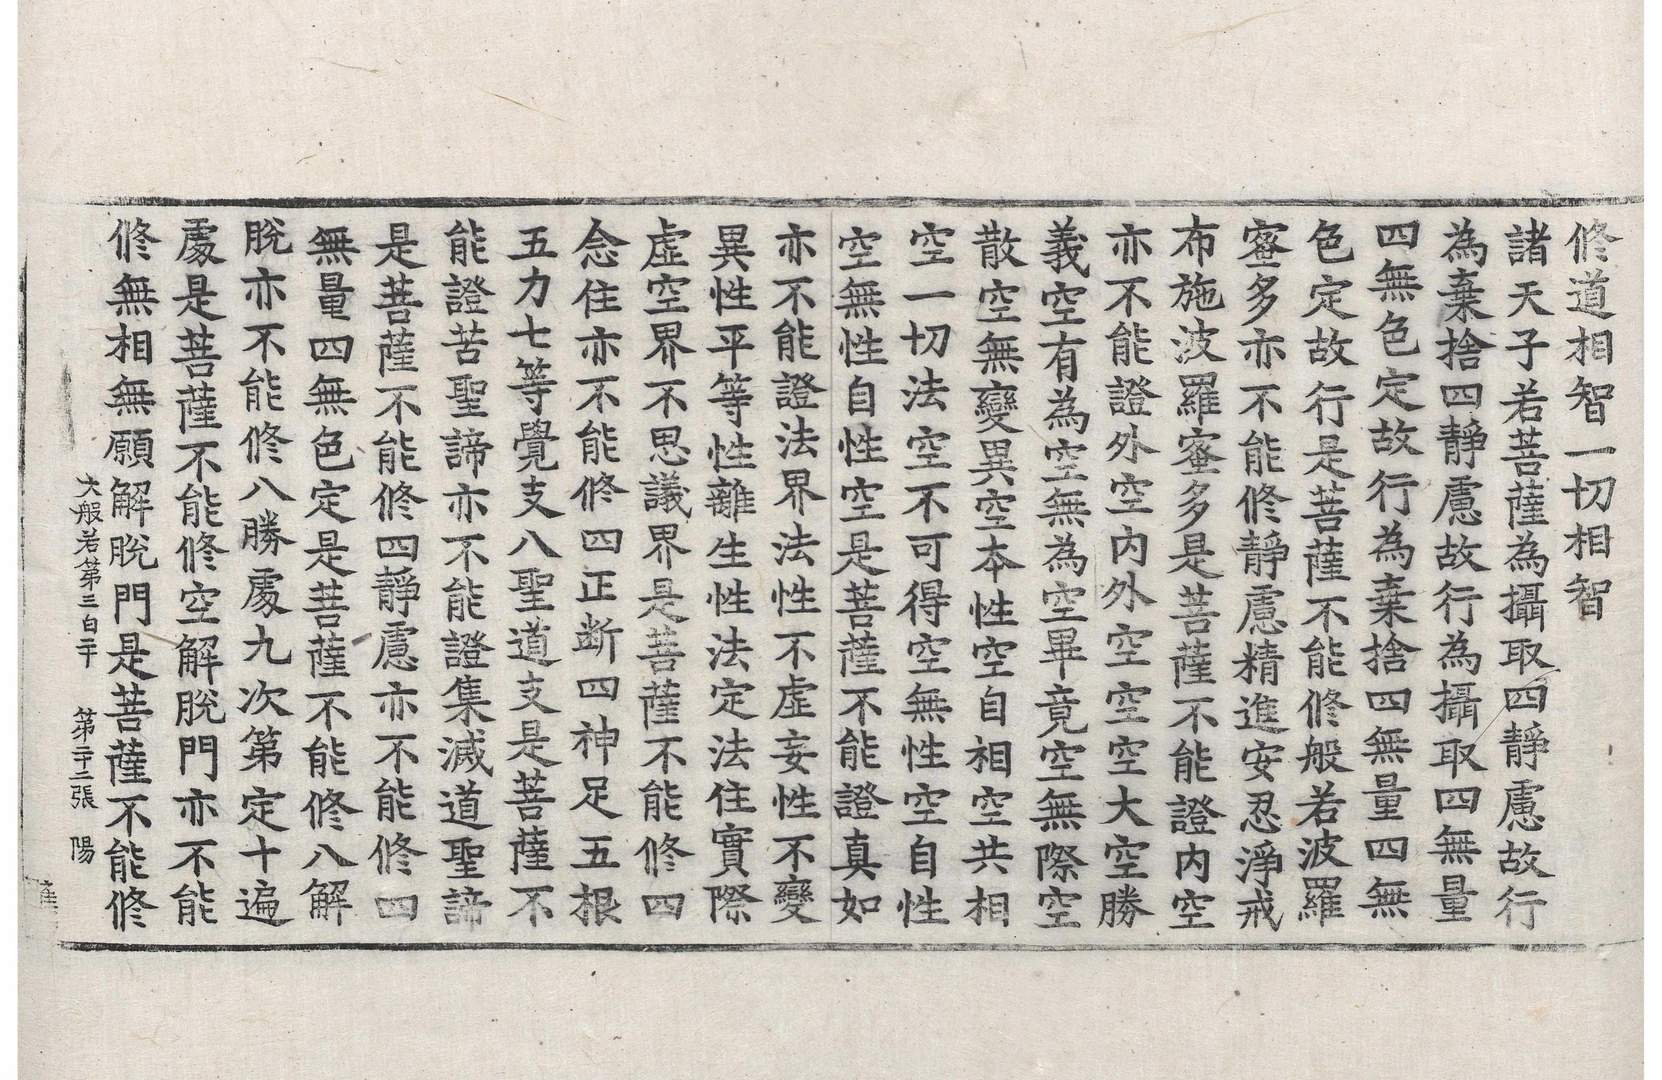 修道相智一切相智
諸天子若菩薩為攝取四靜慮故行
為棄捨四靜慮故行為攝取四無量
四無色定故行為棄捨四無量四無
色定故行是菩薩不能修般若波羅
蜜多亦不能修靜慮精進安忍淨戒
布施波羅蜜多是菩薩不能證內空
亦不能證外空內外空空空大空勝
義空有為空無為空畢竟空無際空
散空無變異空本性空自相空共相
空一切法空不可得空無性空自性
空無性自性空是菩薩不能證真如
亦不能證法界法性不虛妄性不變
異性平等性離生性法定法住實際
虛空界不思議界是菩薩不能修四
念住亦不能修四正斷四神足五根
五力七等覺支八聖道支是菩薩不
能證苦聖諦亦不能證集滅道聖諦
是菩薩不能修四靜慮亦不能修四
無量四無色定是菩薩不能修八解
脫亦不能修八勝處九次第定十遍
處是菩薩不能修空解脫門亦不能
修無相無願解脫門是菩薩不能修
大般若第三百二十 第二十二張 陽